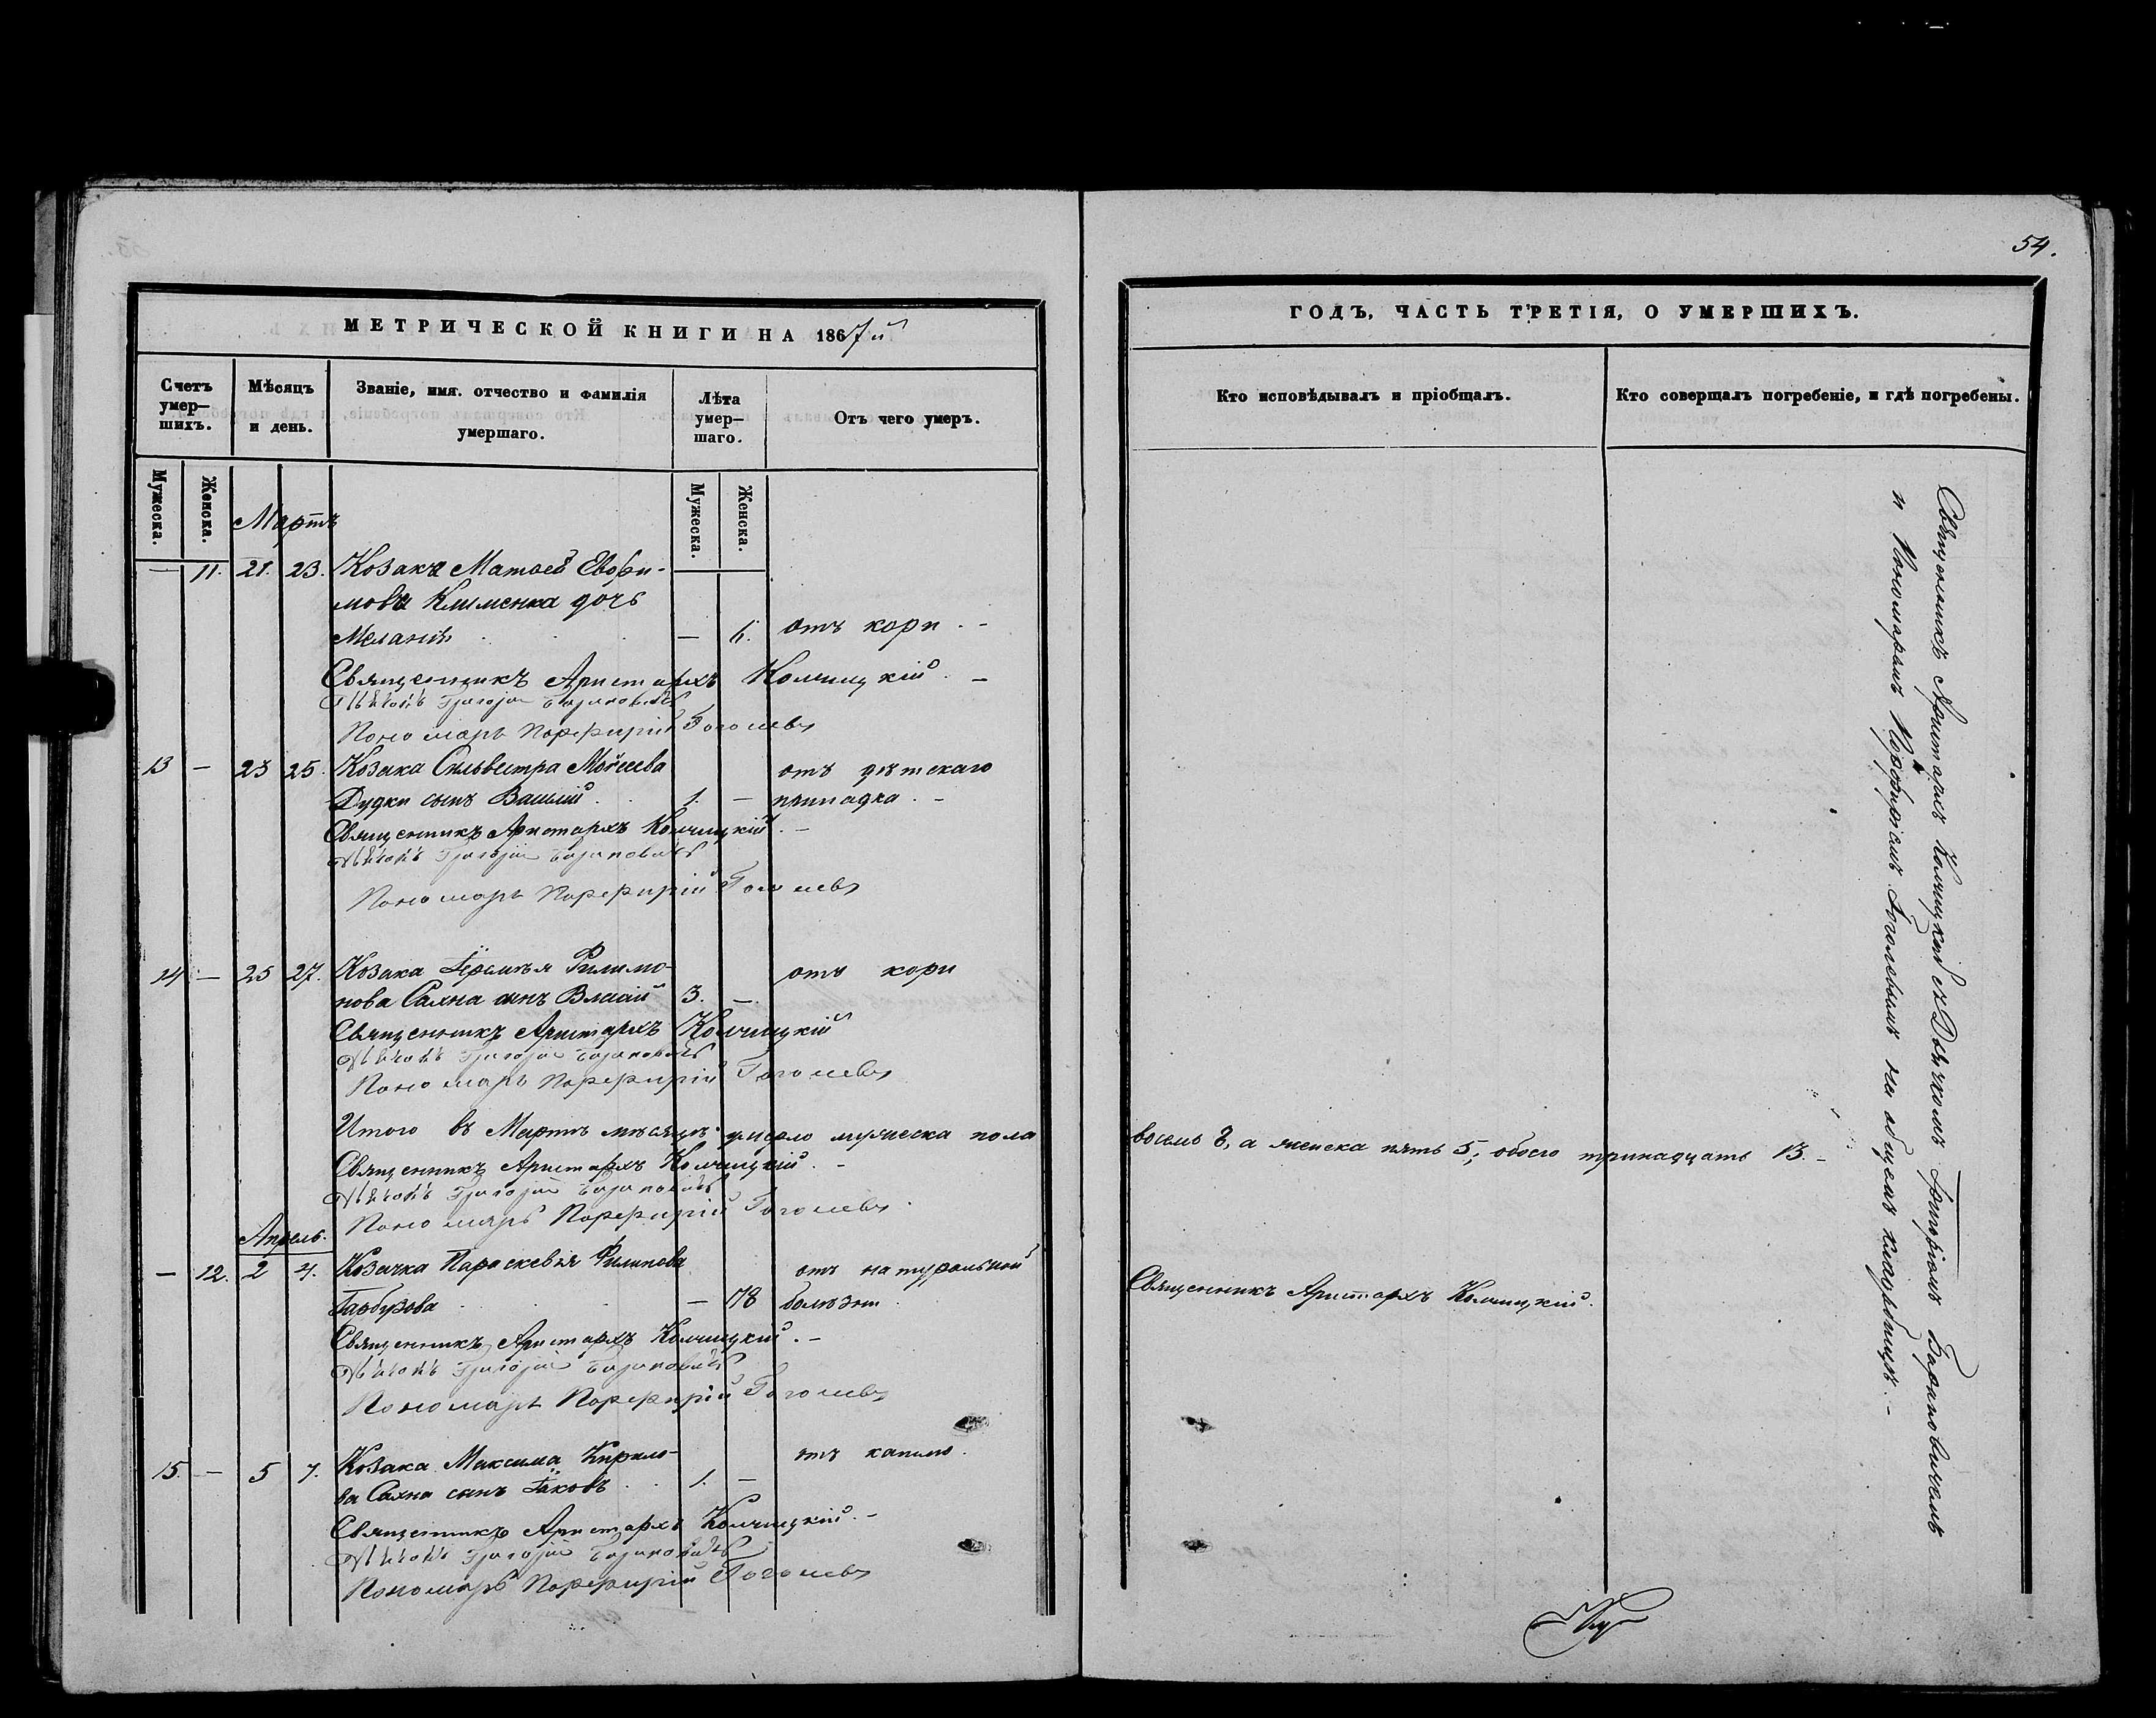 54.
МЕТРИЧЕСКОЙ КНИГИ НА 1867й
Счетъ умер-
шихъ.
Мѣсяцъ
и день.
Званіе, имя, отчество и фамилія
умершаго.
Лѣта
умер-
шаго.
Отъ чего умеръ.
Мужеска.
Женска.
Мужеска.
Женска.
Мартъ
— 11. 21. 23. Козака Матвея Евфи-
мова Клименка дочь
Меланія — 6. отъ кори. -
Священникъ Аристархъ Колчицкій. -
Дьячокъ Григорій Барановичъ
Пономарь Порфирій Гоголевъ
13 — 23 25. Козака Сильвестра Моѵсеева отъ дѣтскаго
Дудки сынъ Василій. 1. — припадка. -
Священникъ Аристархъ Колчицкій. -
Дьячокъ Григорій Барановичъ
Пономарь Порфирій Гоголевъ
14. — 25 27. Козака Іереміи Филимо- отъ кори
нова Сахна сынъ Власій 3. —
Священникъ Аристархъ Колчицкій
Дьячокъ Григорій Барановичъ
Пономарь Порфирій Гоголевъ
Итого въ Мартѣ мѣсяцѣ умерло мужеска пола
Священникъ Аристархъ Колчицкій. -
Дьячокъ Григорій Барановичъ
Пономарь Порфирій Гоголевъ
Апрель.
— 12. 2 4. Козачка Параскевія Филипова отъ натуральной
Гарбузова — 78 болѣзни.
Священникъ Аристархъ Колчицкій. -
Дьячокъ Григорій Барановичъ
Пономарь Порфирій Гоголевъ
15. — 5 7. Козака Максима Кирило- отъ кашлю.
ва Сахна сынъ Іаковъ. 1. —
Священникъ Аристархъ Колчицкій. -
Дьячокъ Григорій Барановичъ
Пономарь Порфирій Гоголевъ
ГОДЪ, ЧАСТЬ ТРЕТІЯ, О УМЕРШИХЪ.
Кто исповѣдывалъ и пріобщалъ.
Кто совершалъ погребеніе, и гдѣ погребены.
восемь 8, а женска пять 5; обоего тринадцать 13. -
Священникъ Аристархъ Колчицкій.
Священникъ Аристархъ Колчицкій съ Дьячкомъ Григоріемъ Барановичемъ
и Пономаремъ Порфиріемъ Гоголевымъ на общемъ кладбищѣ. -